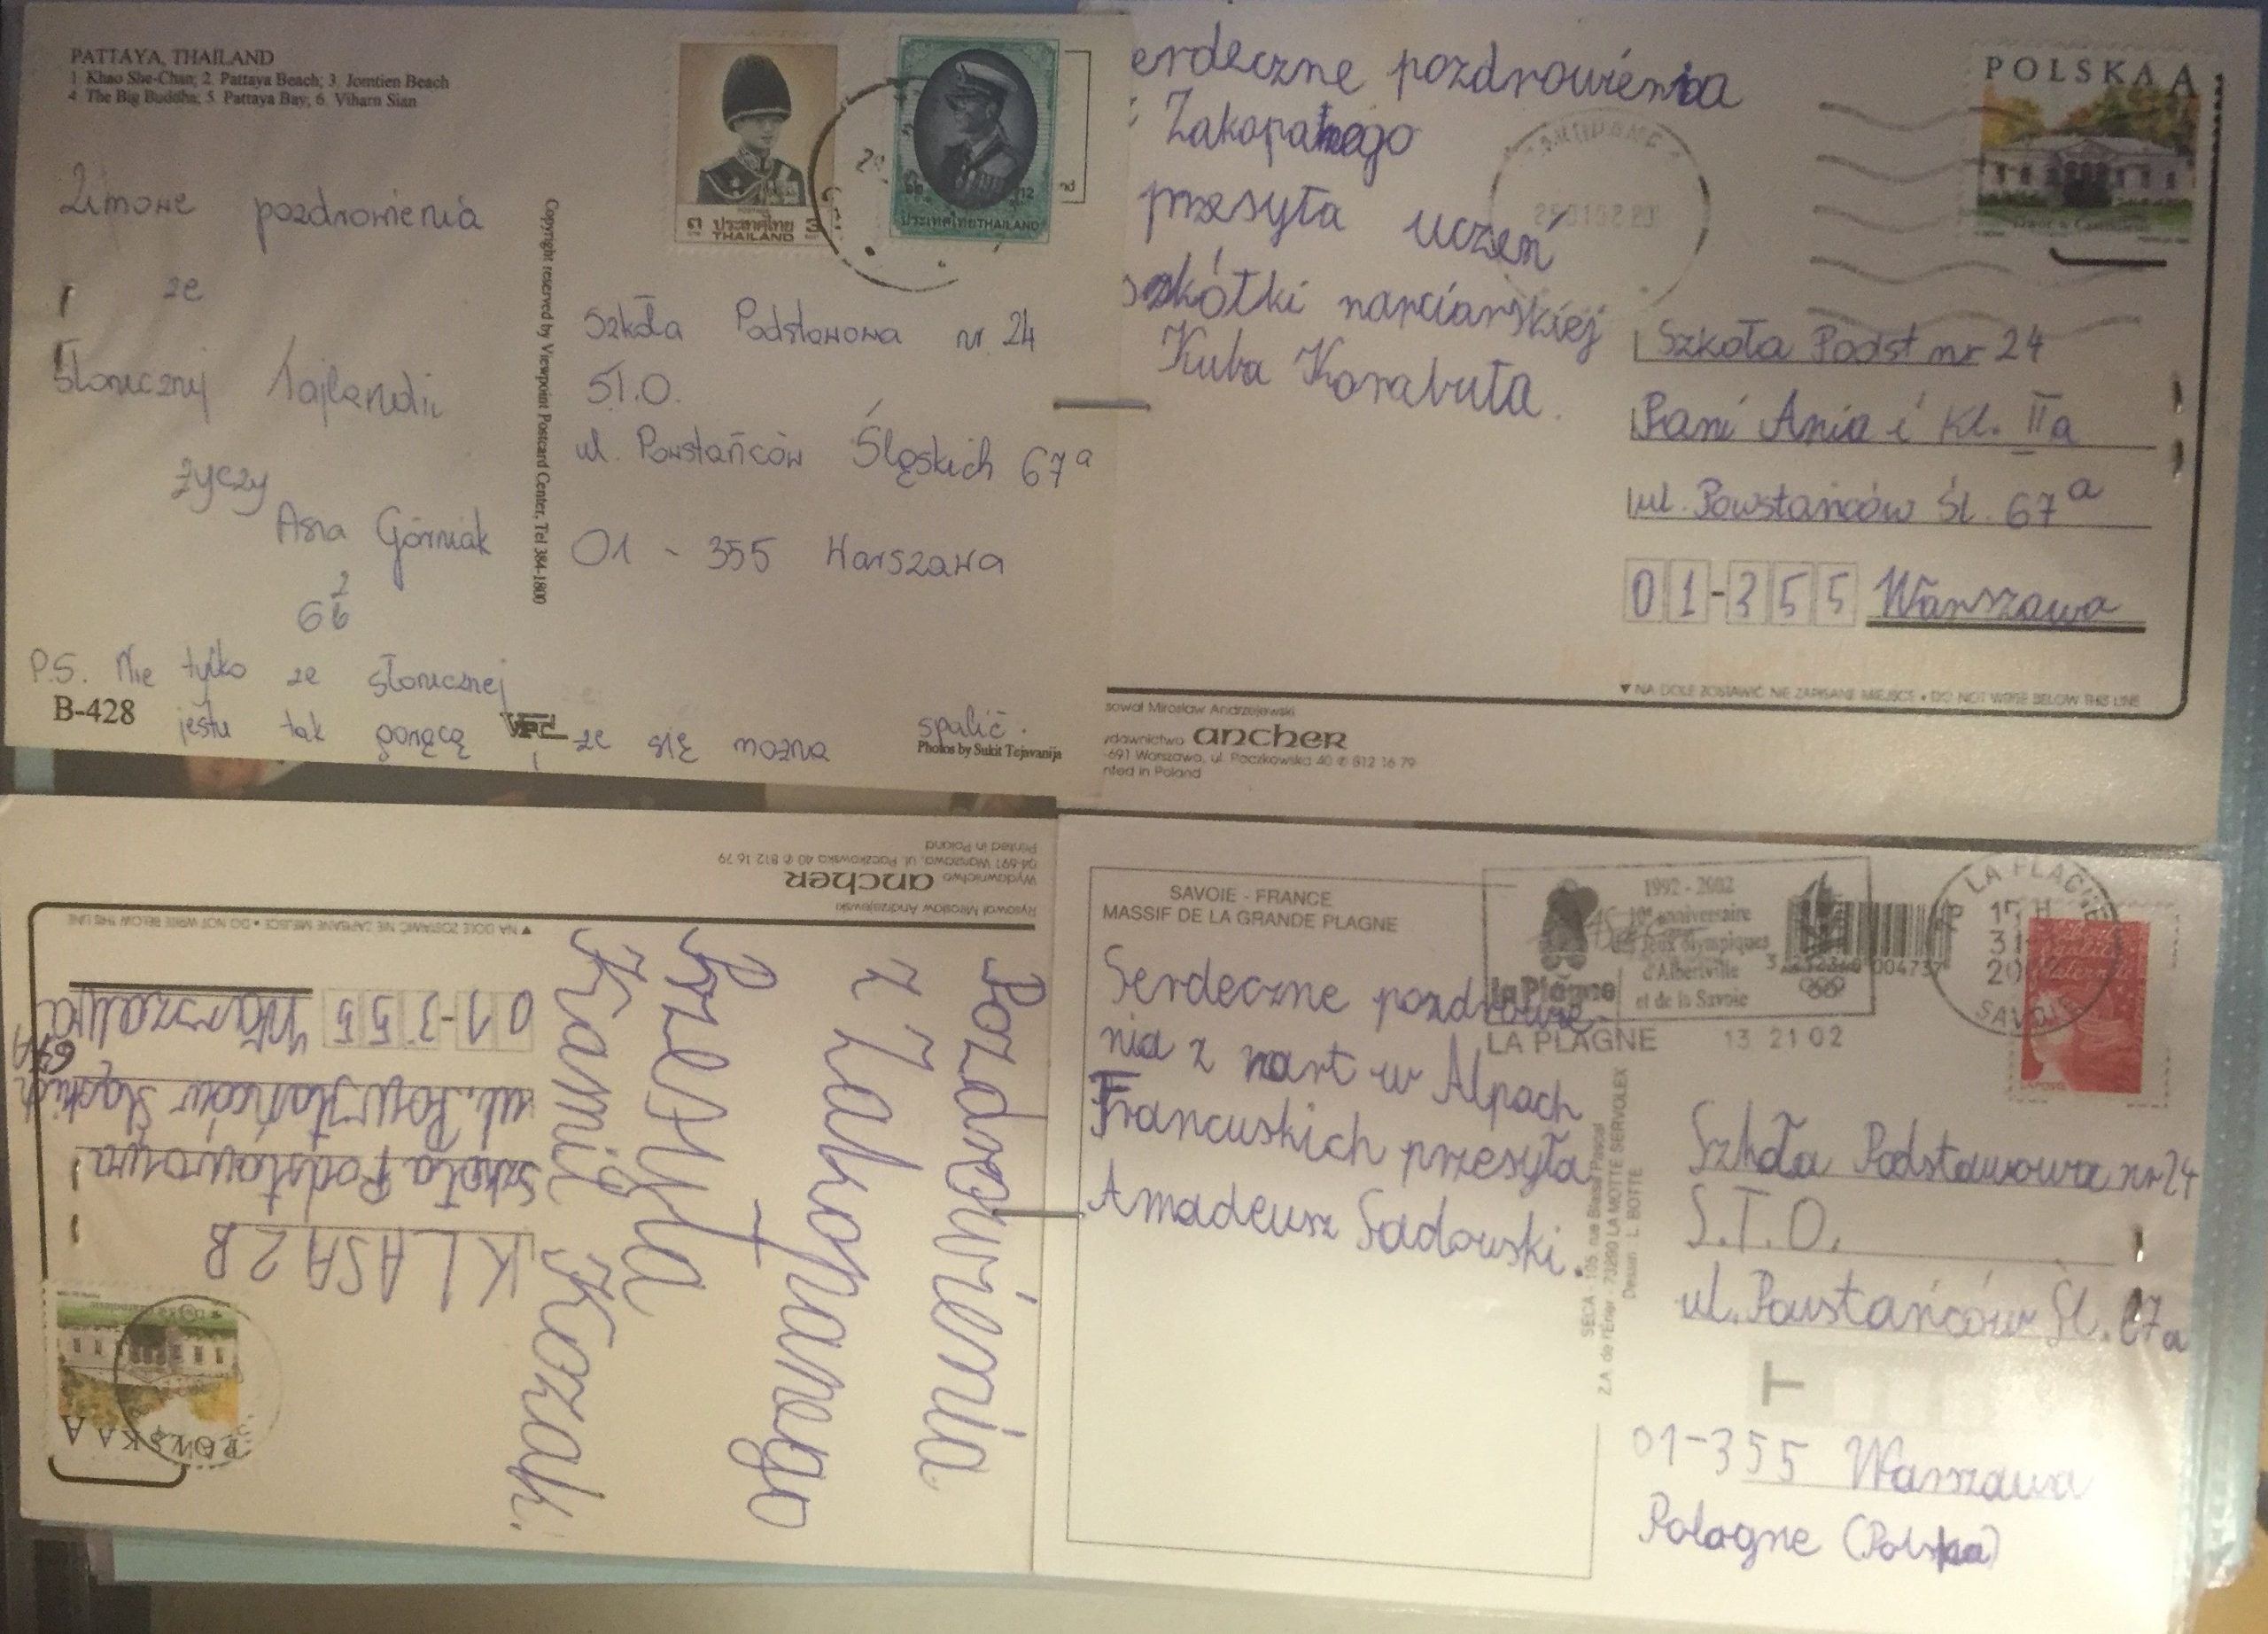 PATTAYA, THAILAND
1. Khao She-Chan; 2. Pattaya Beach; 3. Jomtien Beach
4. The Big Buddha; 5. Pattaya Bay; 6. Viharn Sian
Zimowe pozdrowienia
ze
Słonecznej Tajlandii
życzy
Asia Górniak
6
P.S. Nie tylko ze słonecznej
B-428
jestu tak gorąco
że się można
spalić.
Photos by Sukit Tejavanija
Copyright reserved by Viewpoint Postcard Center, Tel 384-1800
ประเทศไทย
THAILAND
ประเทศไทย THAILAND
Szkoła Podstawowa nr. 24
S.T.O.
ul. Powstańców Śląskich 67a
01 - 355 Warszawa
erdeczne pozdrowienia
Zakopanego
przesyła uczeń
szkółki narciarskiej
Kuba Korabuta.
POLSKA A
Szkoła Podst nr 24
Pani Ania i Kl. IIa
ul. Powstańców Śl. 67a
01-355 Warszawa
▼ NA DOLE ZOSTAWIĆ NIE ZAPISANE MIEJSCE • DO NOT WRITE BELOW THIS LINE
sował Mirosław Andrzejewski
ydawnictwo ancher
-691 Warszawa, ul. Paczkowska 40 ✆ 812 16 79
nted in Poland
Pozdrowienia
z Zakopanego
Przesyła
Kamil Kozak.
POLSKA A
KLASA 2B
Szkoła Podstawowa
ul. Powstańców Śląskich
67A
01-355 Warszawa
▼ NA DOLE ZOSTAWIĆ NIE ZAPISANE MIEJSCE • DO NOT WRITE BELOW THIS LINE
Rysował Mirosław Andrzejewski
Wydawnictwo ancher
04-691 Warszawa, ul. Paczkowska 40 ✆ 812 16 79
Printed in Poland
SAVOIE - FRANCE
MASSIF DE LA GRANDE PLAGNE
Serdeczne pozdrowie-
nia z nart w Alpach
Francuskich przesyła
Amadeusz Sadowski.
1992 - 2002
10e anniversaire
des Jeux olympiques
d'Albertville
et de la Savoie
la Plagne
LA PLAGNE 13 21 02
LA PLAGNE
15 H
31
20
SAVOIE
SECA - 105, rue Blaise Pascal
Z.A. de l'Erier - 73290 LA MOTTE SERVOLEX
Dessin : L. BOTTE
Szkoła Podstawowa nr 24
S.T.O.
ul. Powstańców Śl. 67a
T
01-355 Warszawa
Pologne (Polska)